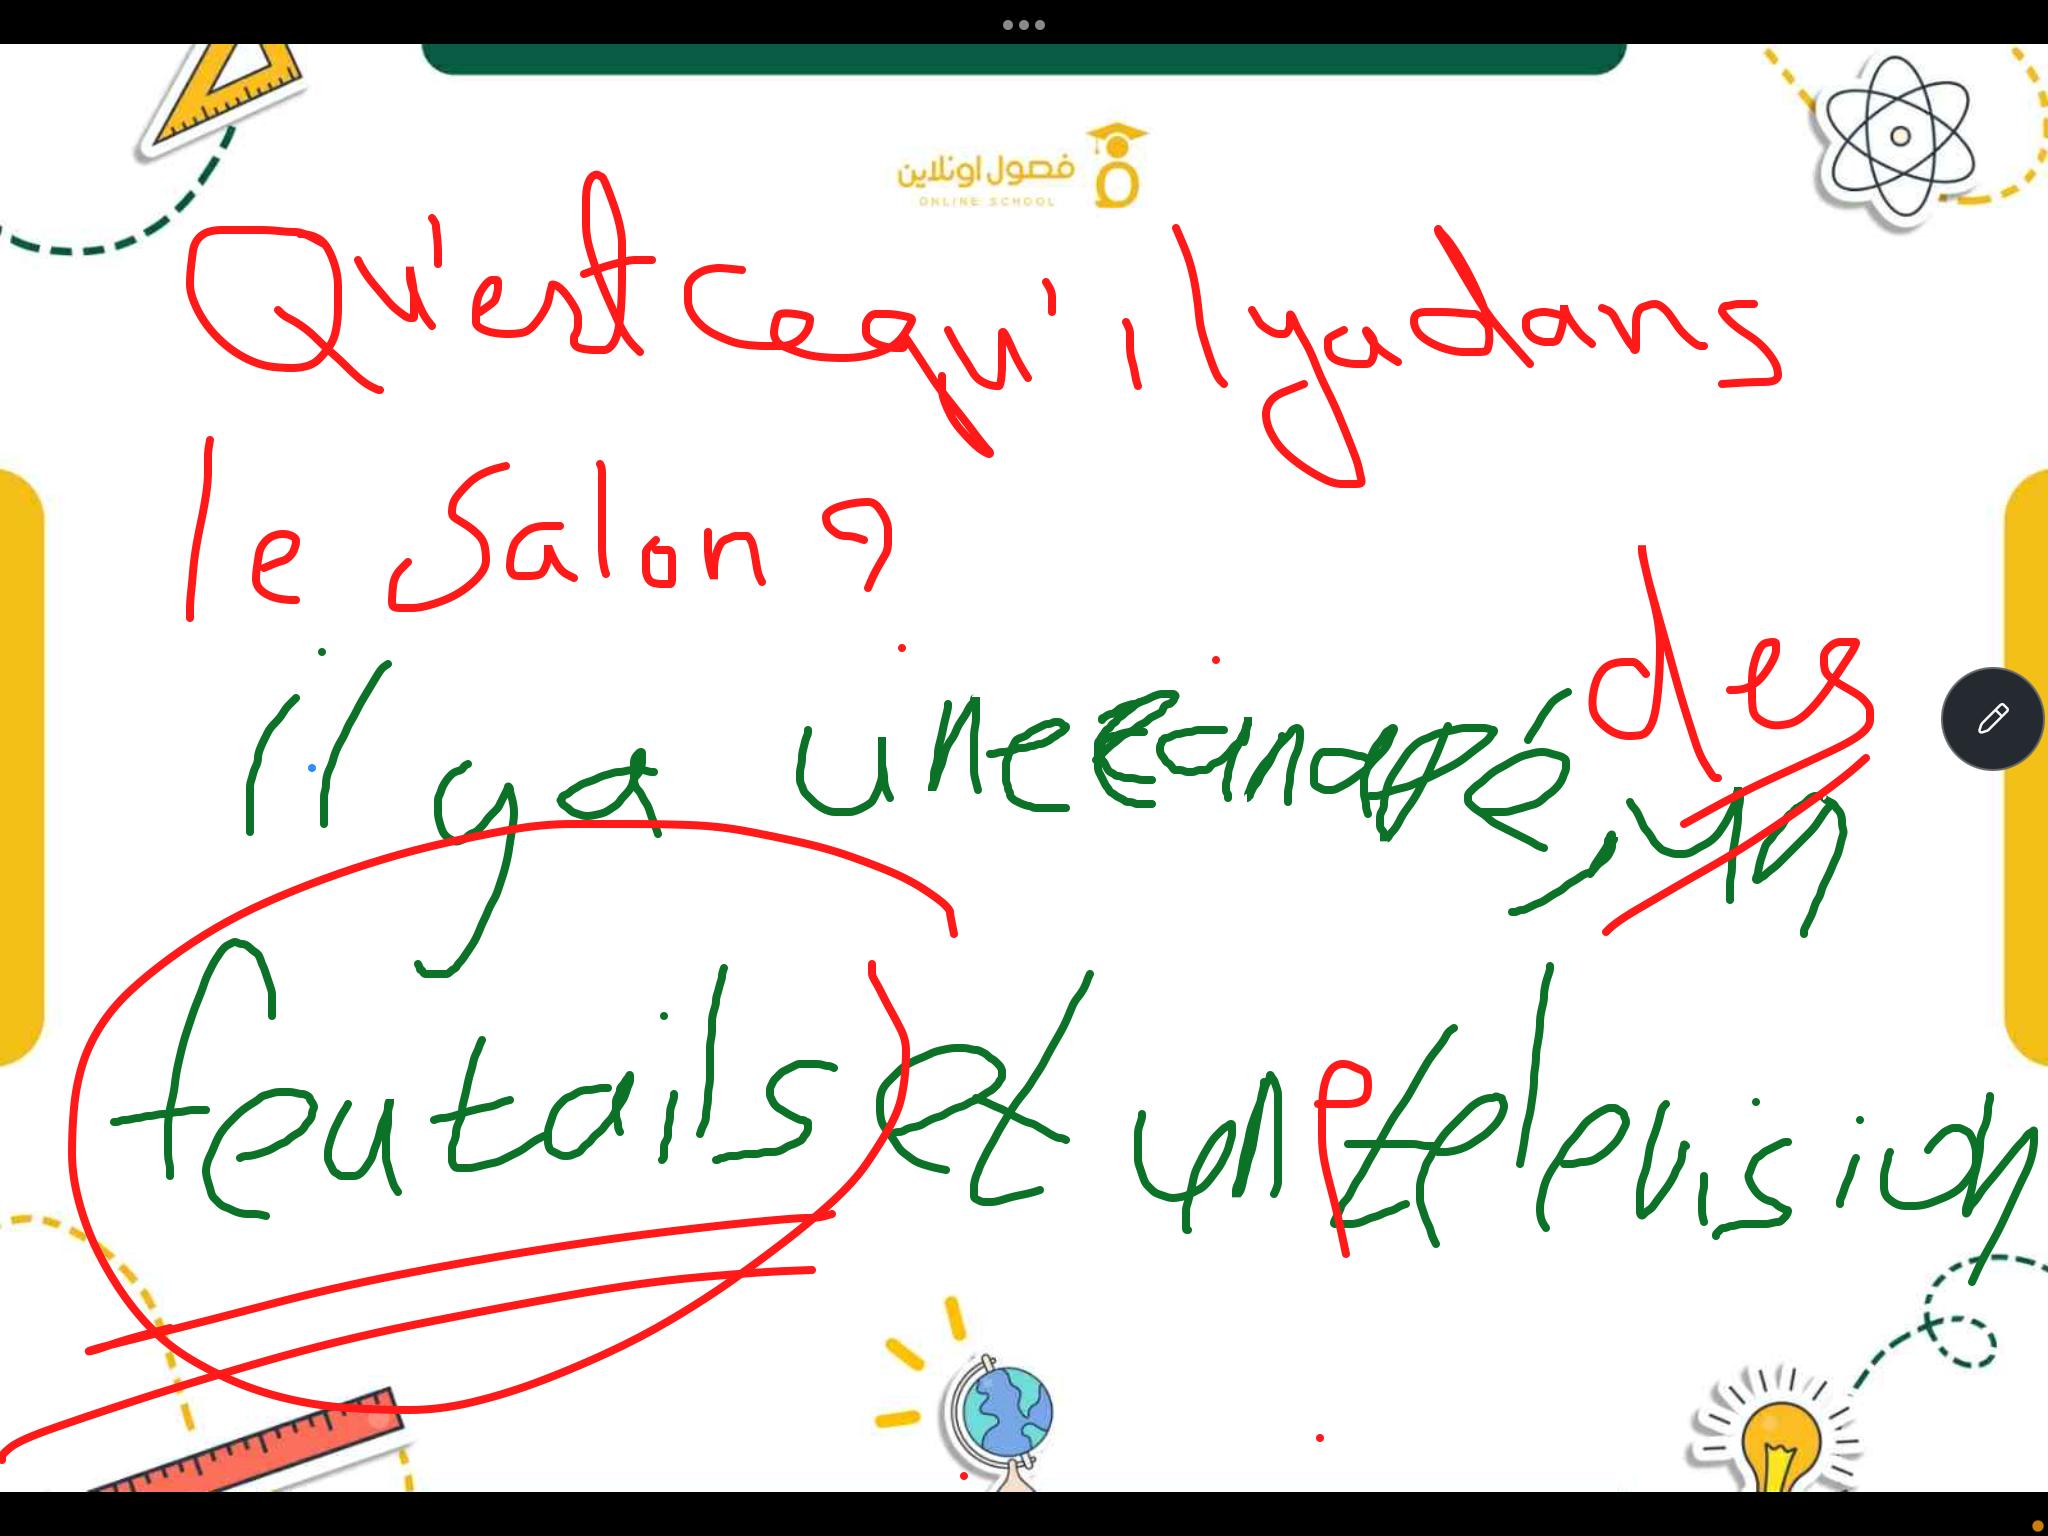 فصول اونلاين
ONLINE SCHOOL
Qu'est ce qu'il ya dans
le Salon ?
des
il ya une canapé, un
feutails et un e télevision